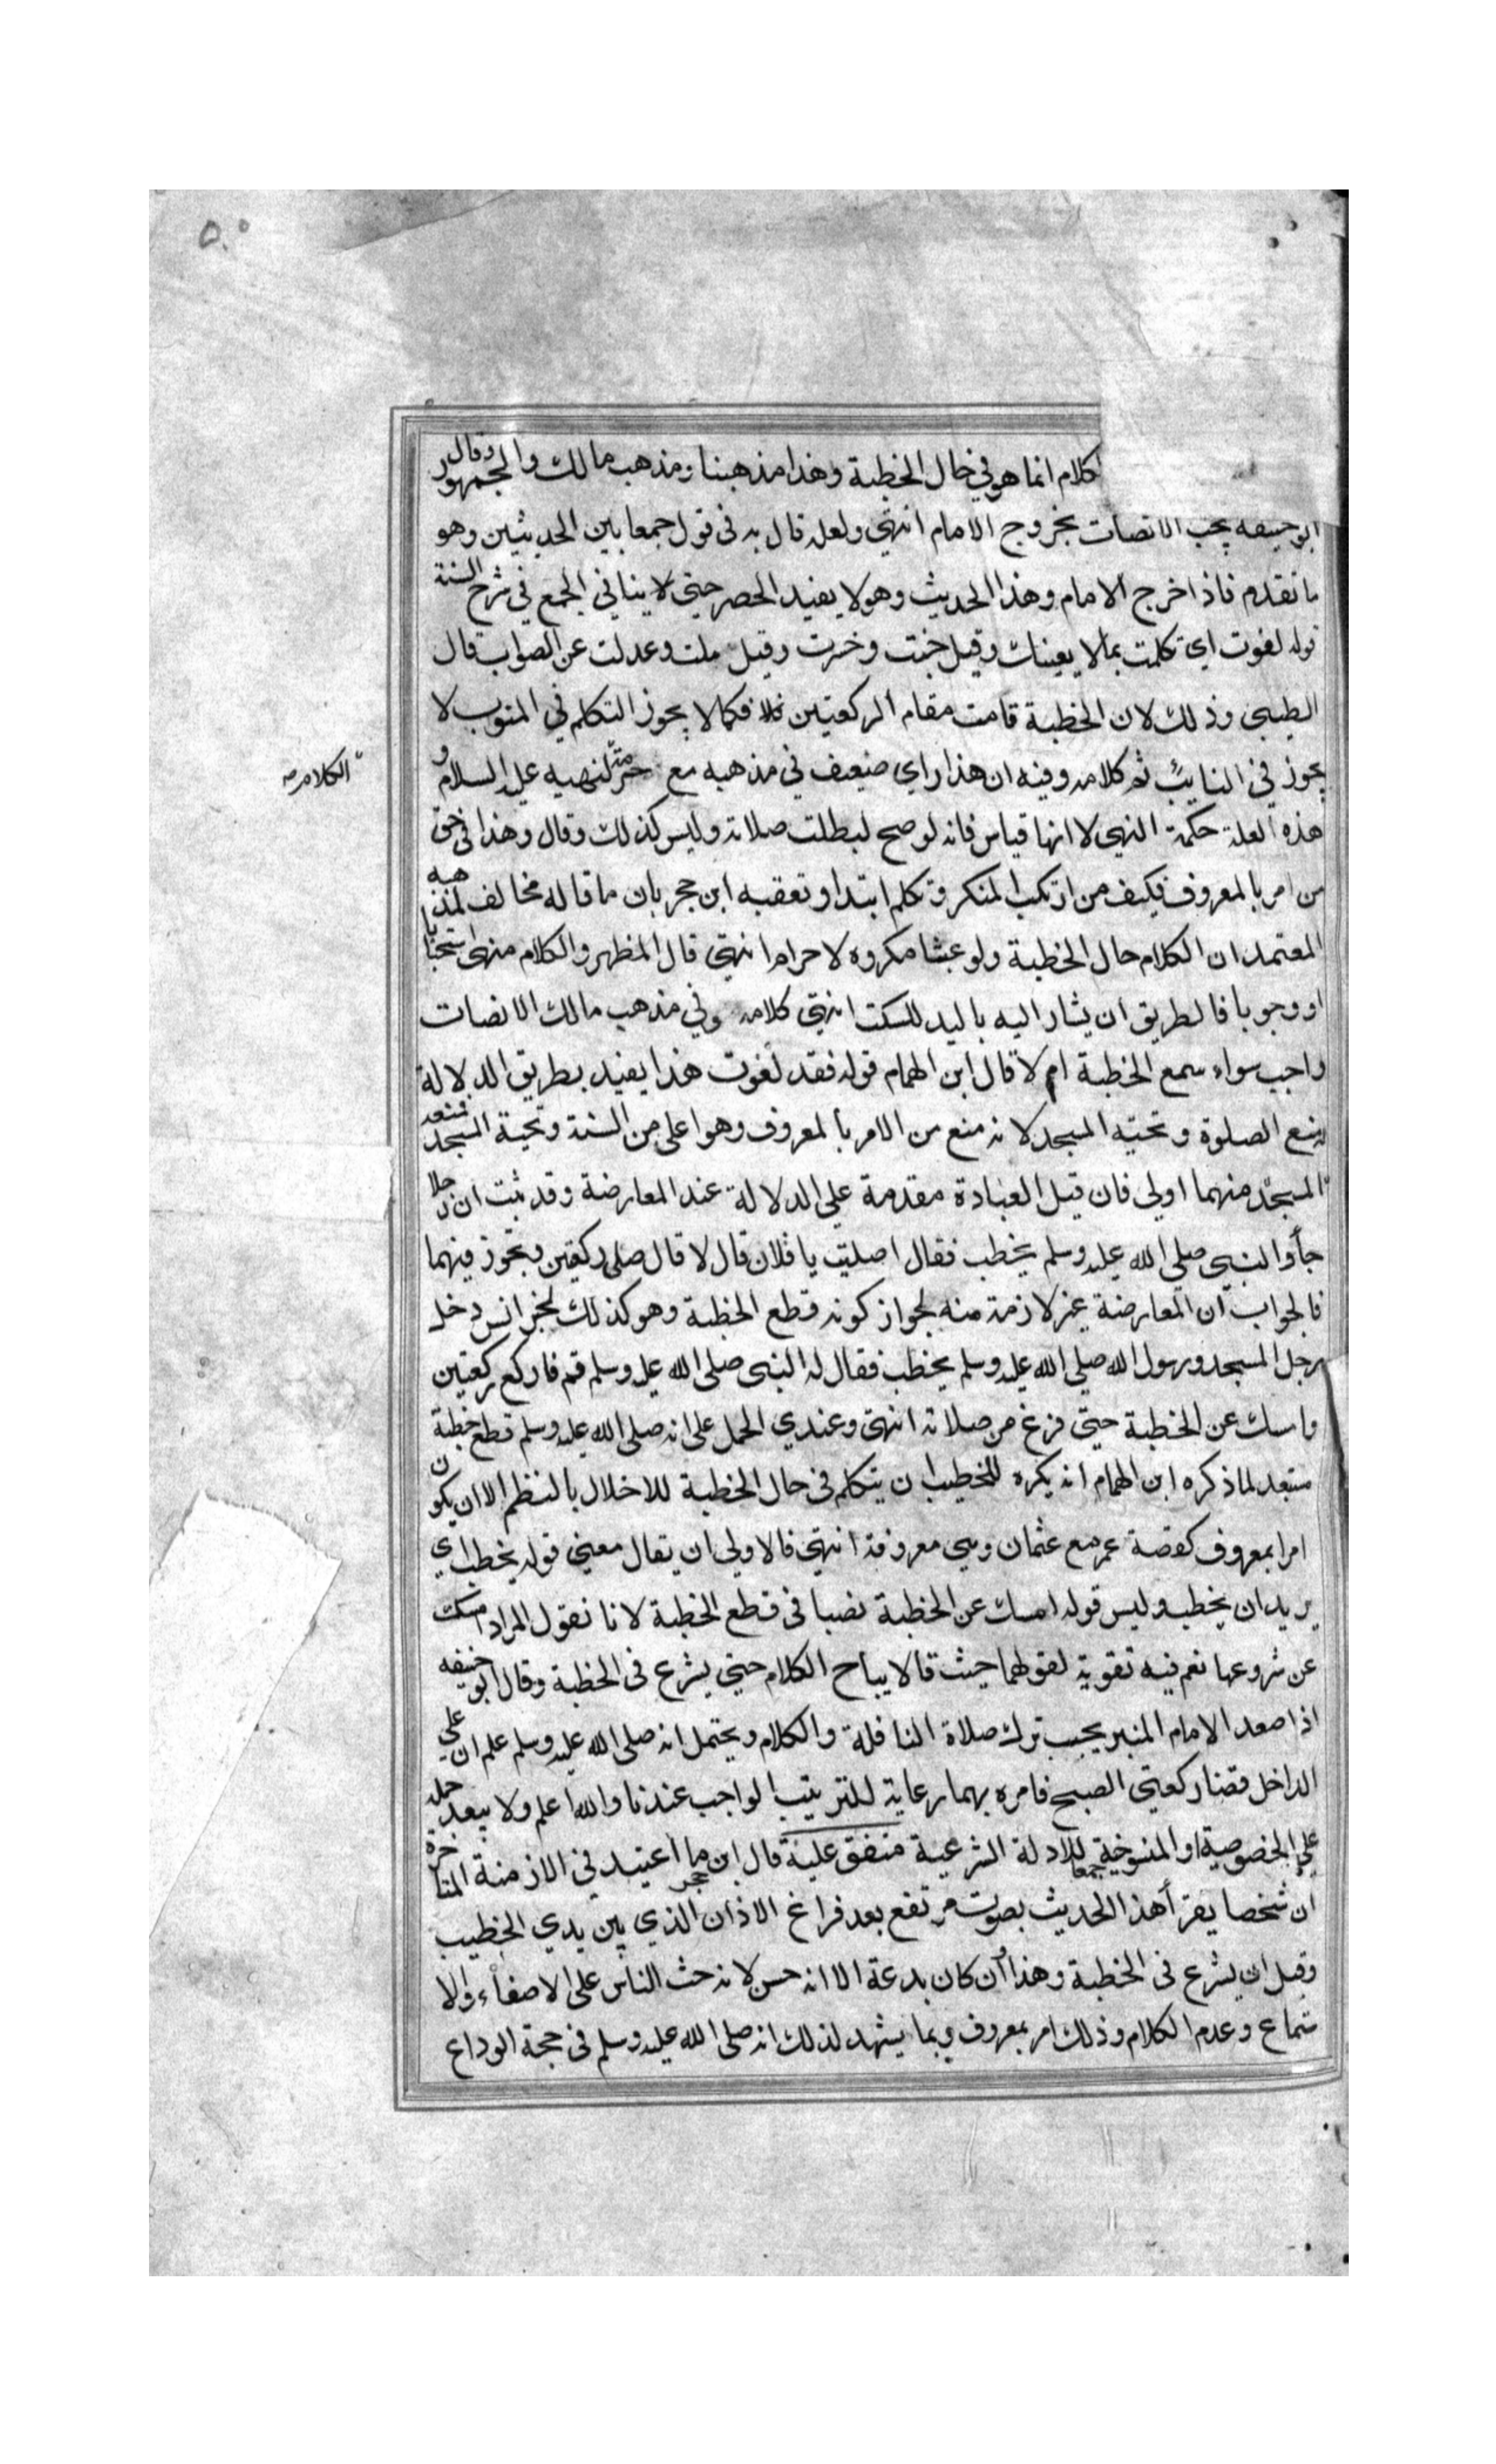 ٥٠
كلام انما هو في حال الخطبة وهذا مذهبنا ومذهب مالك والجمهور وقال
ابو حنيفه يجب الانصات بخروج الامام انتهي ولعله قال به في قول جمعا بين الحديثين وهو
ما تقدم فاذا خرج الامام وهذا الحديث وهو لا يفيد الحصر حتي لا ينافي الجمع في شرح السنة
قوله لغوت اي تكلمت بما لا يعينك وقيل خبت وخسرت وقيل ملت وعدلت عن الصواب قال
الطيبي وذلك لان الخطبة قامت مقام الركعتين فكما لا يجوز التكلم في المنوب لا
يجوز في النايب تم كلامه وفيه ان هذا راي ضعيف في مذهبه مع حرمة لنهيه عليه السلام و
الكلام صه
هذه العلة حكمة النهي لا انها قياس فانه لو صح لبطلت صلاته وليس كذلك وقال وهذا في حق
من امر بالمعروف فكيف من ارتكب المنكر وتكلم ابتدا وتعقبه ابن حجر بان ما قاله مخالف لمذهبه
المعتمد ان الكلام حال الخطبة ولو عبثا مكروه لا حرام انتهي قال المظهر والكلام منهي استحبابا
او وجوبا فالطريق ان يشار اليه باليد للسكت انتهي كلامه وفي مذهب مالك الانصات
واجب سواء سمع الخطبة ام لا قال ابن الهمام قوله فقد لغوت هذا يفيد بطريق الدلالة
منع الصلوة وتحيته المسجد لانه منع من الامر بالمعروف وهو اعلى من السنة وتحية المسجد فمنعه
المسجد منهما اولي فان قيل العبادة مقدمة على الدلالة عند المعارضة وقد ثبت ان رجلا
جأ والنبي صلي الله عليه وسلم يخطب فقال اصليت يا فلان قال لا قال صلى ركعتين وتجوز فيهما
فالجواب ان المعارضة غير لازمة منه لجواز كونه قطع الخطبة وهو كذلك لخبر انس دخل
رجل المسجد ورسول الله صلي الله عليه وسلم يخطب فقال له النبي صلى الله عليه وسلم قم فاركع ركعتين
وامسك عن الخطبة حتي فرغ من صلاته انتهي وعندي الحمل على انه صلى الله عليه وسلم قطع خطبة
مستبعد لما ذكره ابن الهمام انه يكره للخطيب ان يتكلم في حال الخطبة للاخلال بالنظم الا ان يكون
امرا بمعروف كقصة عمر مع عثمان وهي معروفة انتهي فالاولي ان يقال معني قوله يخطب اي
يريد ان يخطب وليس قوله امسك عن الخطبة نصبا في قطع الخطبة لانا نقول المراد امسك
عن شروعها نعم فيه تقوية لقولهما حيث قالا يباح الكلام حتي يشرع في الخطبة وقال ابو حنيفه
اذا صعد الامام المنبر يجب ترك صلاة النافلة والكلام ويحتمل انه صلى الله عليه وسلم علم ان علي
الداخل قضا ركعتي الصبح فامره بهما رعاية للترتيب الواجب عندنا والله اعلم ولا يبعد حمله
علي الخصوصية او المنسوخية جمعا للادلة الشرعية متفق عليه قال ابن حجر ما اعتيد في الازمنة المتاخرة
ان شخصا يقرأ هذا الحديث بصوت مرتفع بعد فراغ الاذان الذي بين يدي الخطيب
وقبل ان يشرع في الخطبة وهذا وأن كان بدعة الا انه حسن لانه حث الناس على الاصغاء والا
ستماع وعدم الكلام وذلك امر بمعروف وبما يشهد لذلك انه صلى الله عليه وسلم في حجة الوداع